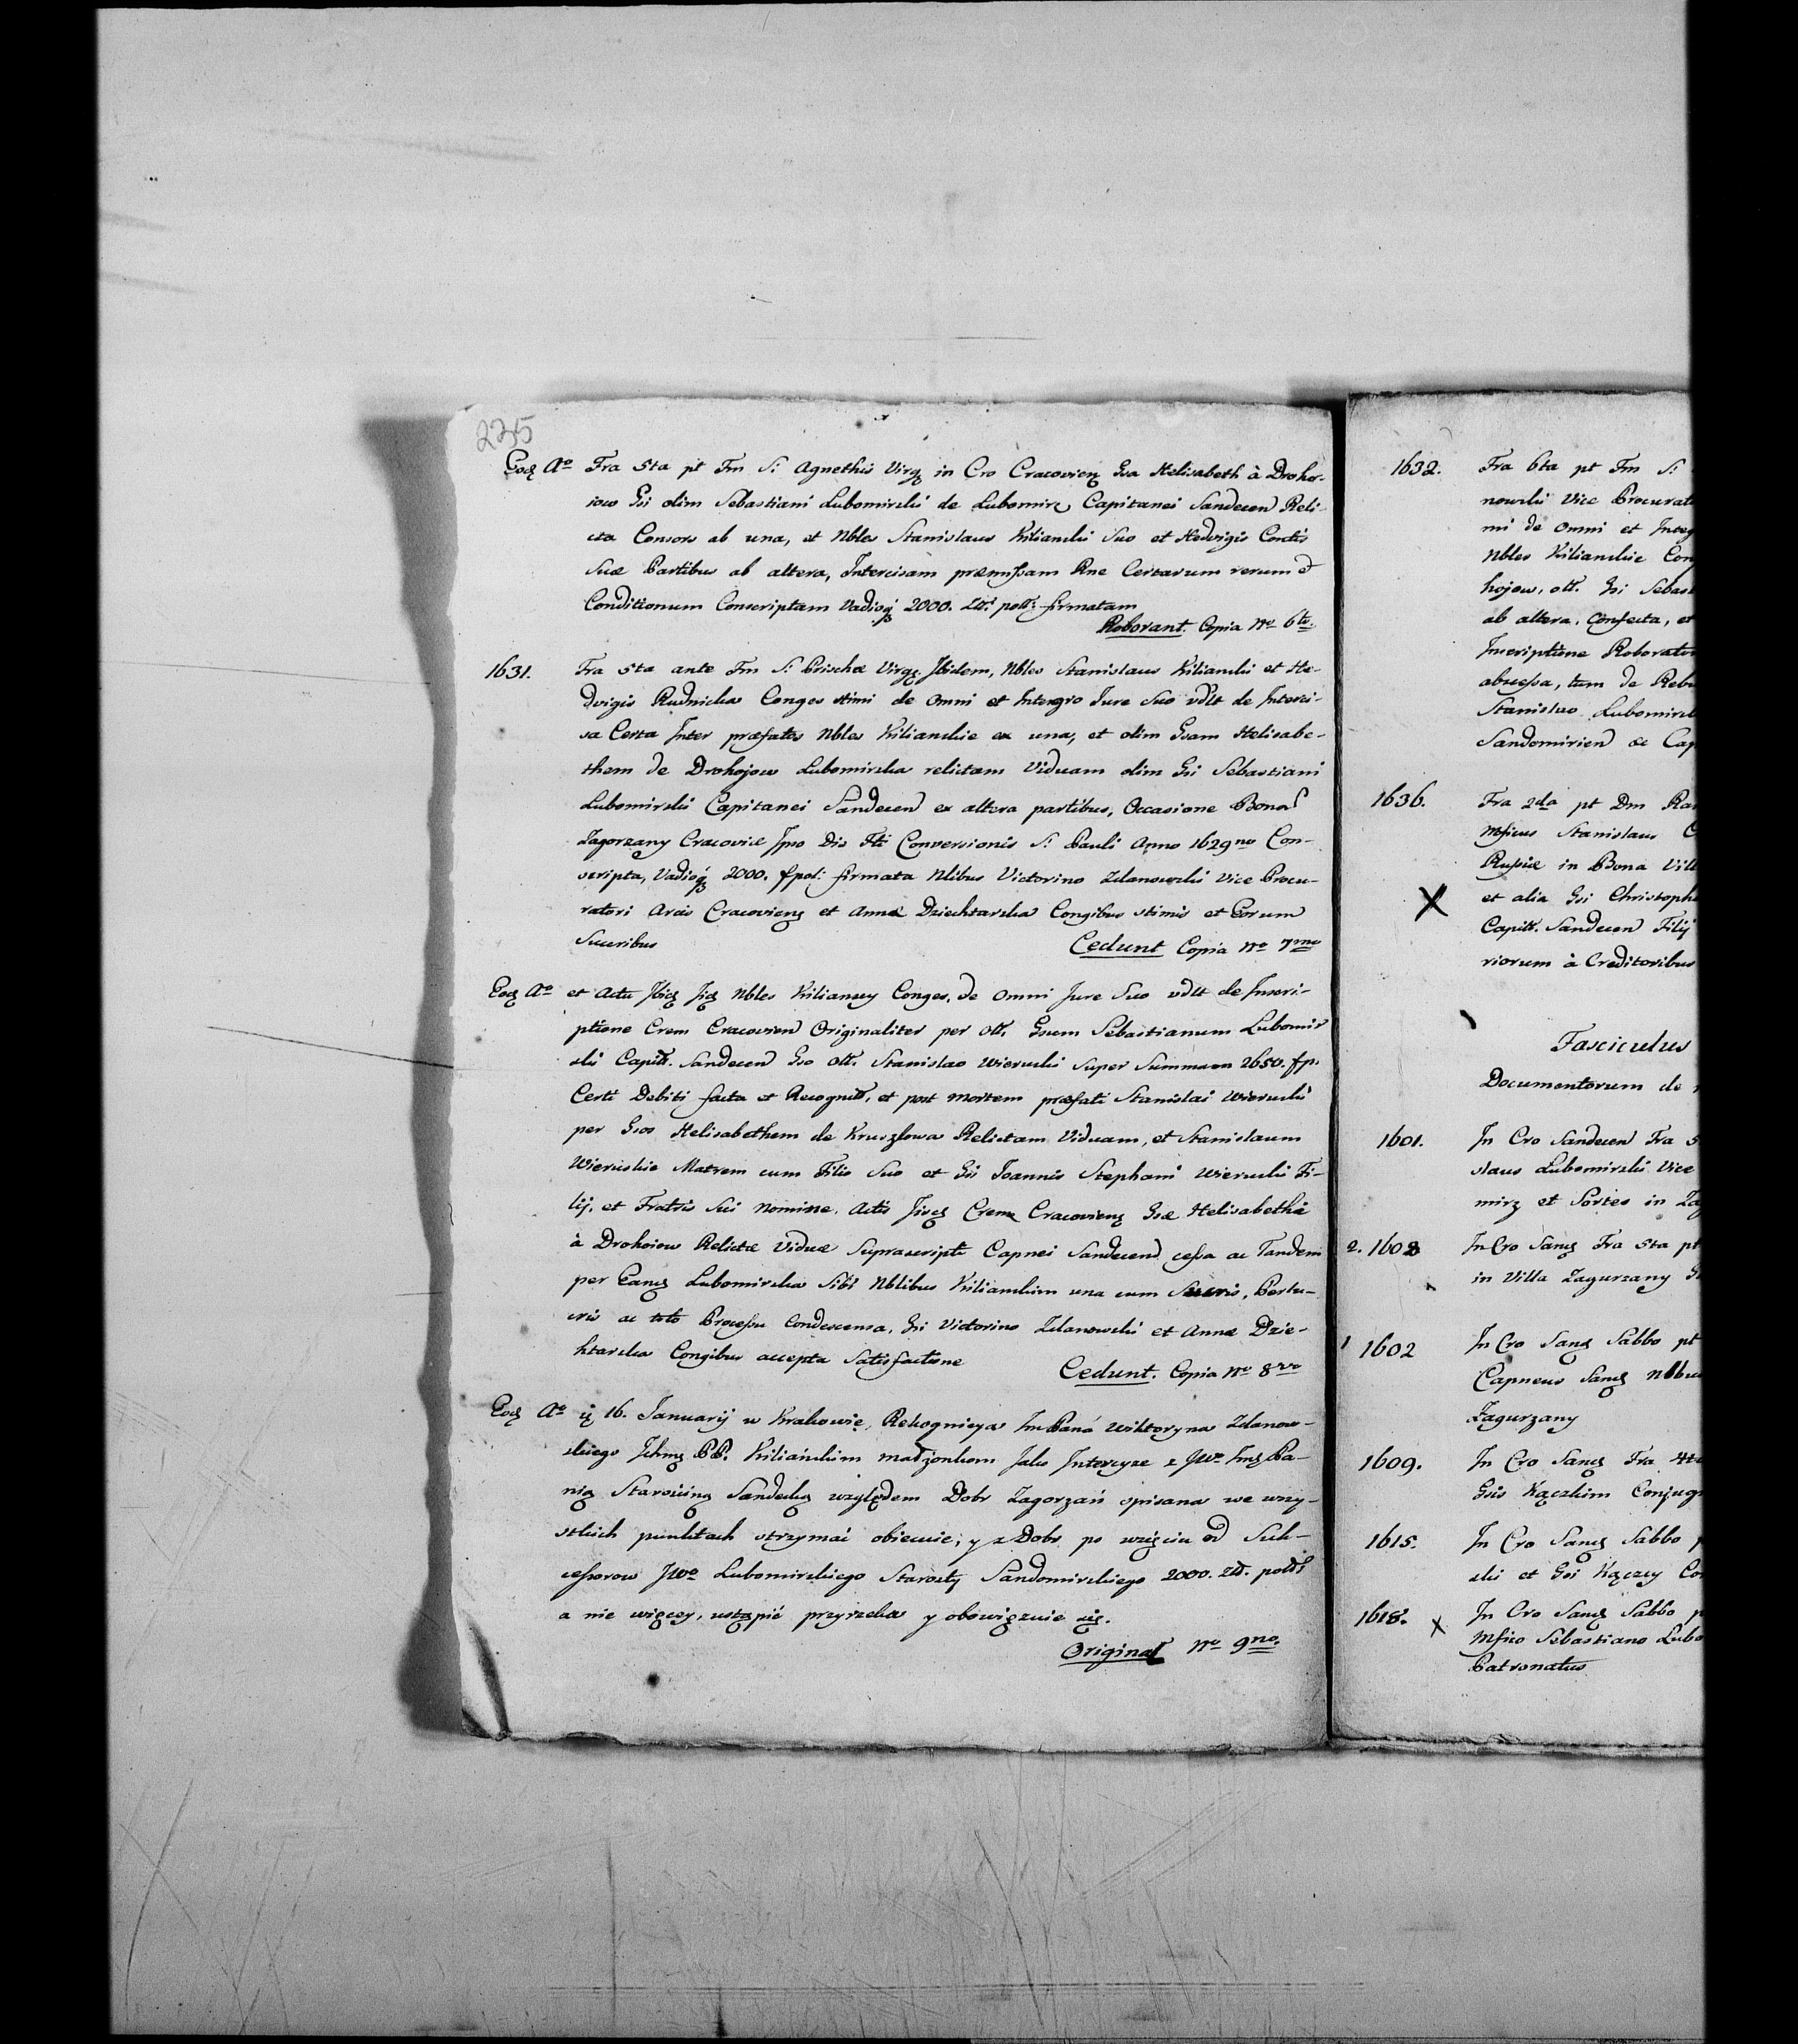 235
Eoq Ao Fra 5ta pt Fm S: Agnethis Virg. in Cro Cracovien Gsa Helisabeth à Droho-
iow Gsi olim Sebastiani Lubomirski de Lubomirz Capitanei Sandecen Reli-
cta Consors ab una, et Nbles Stanislaus Kilianski Suo et Hedvigis Contis
Suæ Partibus ab altera, Intercisam præmissam Rne Certarum rerum et
Conditionum Conscriptam Vadioq 2000. Zł: poll: firmatam
Roborant. Copia No 6to.
1631. Fra 5ta ante Fm S: Prischæ Virg. Ibidem, Nbles Stanislaus Kilianski et He-
dvigis Rudnicka Conges stimi de Omni et Integro Jure Suo vdlt de Interci-
sa Certa Inter præfatos Nbles Kilianskie ex una, et olim Gsam Helisabe-
them de Drohojow Lubomirska relictam Viduam olim Gsi Sebastiani
Lubomirski Capitanei Sandecen ex altera partibus, Occasione Bonor
Zagorzany Cracoviæ Ipso Die Fti Conversionis S: Pauli Anno 1629no Con-
scripta, Vadioq 2000. fpol: firmata Nlibus Victorino Zdanowski Vice Procu-
ratori Arcis Cracovien et Annæ Dziechtarska Congibus stimis et Eorum
Succribus
Cedunt Copia No 7mo
Eoq Ao et Actu Ibiq Jiq Nbles Kilianscy Conges, de Omni Jure Suo vdlt de Inscri-
ptione Crem Cracovien Originaliter per Olł. Gsum Sebastianum Lubomir
ski Capitł. Sandecen Gso Olł. Stanislao Wierucki Super Summam 2650. fp.
Certi Debiti facta et Recognitł, et post mortem præfati Stanislai Wierucki
per Gsos Helisabethem de Kruszlowa Relictam Viduam, et Stanislaum
Wieruckie Matrem cum Filio Suo et Gsi Joannis Stephani Wierucki Fi-
lij, et Fratris Sui nomine, Actis Jisq Crem Cracovien Gsæ Helisabethæ
à Drohoiow Relictæ Viduæ Suprascripti Capnei Sandecen cessa ac Tandem
per Eamq Lubomirska Sibi Nblibus Kilianskim una cum Lucris, Perlu-
cris ac toto Processu Condescensa, Gsi Victorino Zdanowski et Annæ Dzie-
htarska Congibus accepta Satisfactione
Cedunt. Copia No 8vo
Eoq Ao is 16. Januarij w Krakowie, Rekognicya ImPana Wiktoryna Zdanow-
skiego Ichmq PP. Kilianskim małżonkom Jako Intercyze z JWo Imq Pa-
nią Starościną Sandecką względem Dobr Zagorzań spisana we wszy-
stkich punktach strzymać obiecuie, y z Dobr po wzięciu od Suk-
cessorow JWo Lubomirskiego Starosty Sandomirskiego 2000. Zł. polł
a nie więcey, ustąpić przyrzeka y obowięzuie się.
Original No 9no.
1632. Fra 6ta pt Fm S:
nowski Vice Procurat
mi de Omni et Integ
Nbles Kilianskie Con
hojow, olł. Gsi Sebast
ab altera. Confecta, et
Inscriptione Roborator
abscessa, tum de Rebu
Stanislao Lubomirsk
Sandomirien ac Cap
1636. Fra 2da pt Dm Ra
Mficus Stanislaus C
Russiæ in Bona Vill
X et alia Gsi Christoph
Capitł. Sandecen Filij
riorum à Creditoribus
Fasciculus
Documentorum de
1601. In Cro Sandecen Fra 5
slaus Lubomirski Vice
mirz et Sortes in Zag
2. 1602 In Cro Sanq Fra 5ta pt
in Villa Zagurzany G
1 1602 In Cro Sanq Sabbo pt
Capneus Sanq Nbbus
Zagurzany
1609. In Cro Sanq Fra 4t
Gsis Kączkim Conjug
1615. In Cro Sanq Sabbo p
ski et Gsi Kączcy Co
1618. x In Cro Sanq Sabbo p
Mfico Sebastiano Lubo
Patronatus